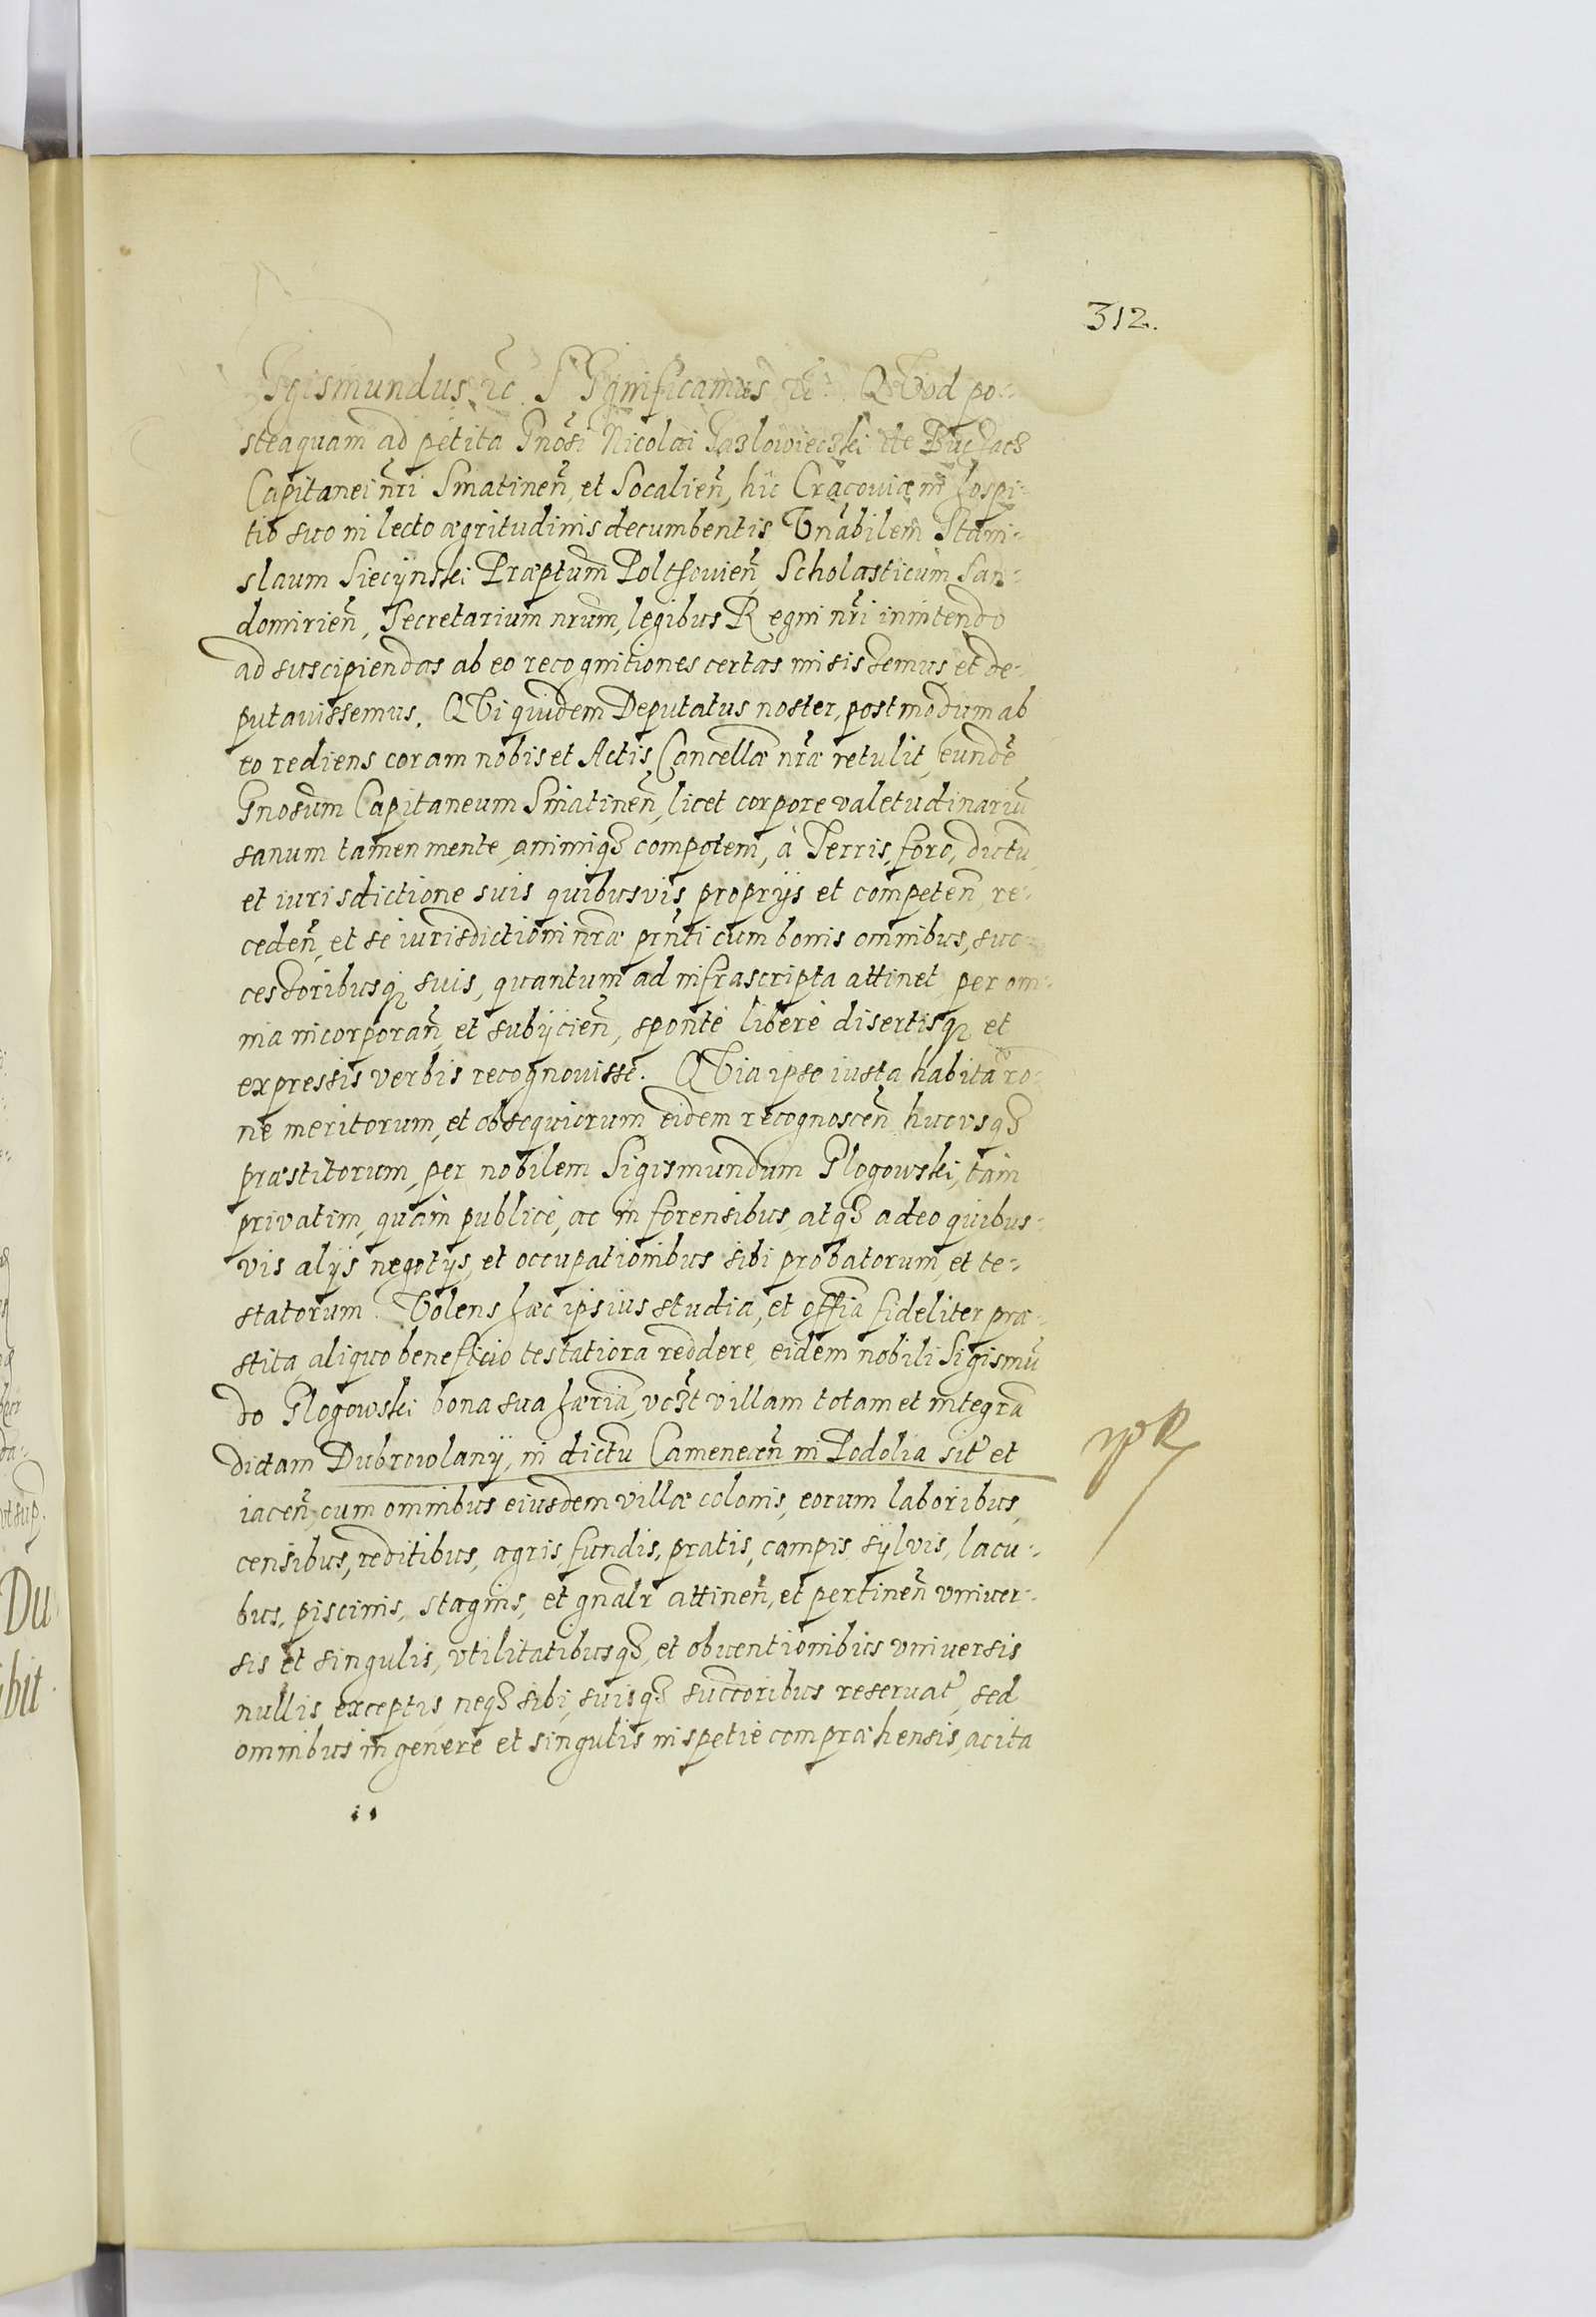 312.
Sigismundus etc. Significamus etc. Quod po-
steaquam ad petita Gnosi Nicolai Jazlowieczki de Buczacz
Capitanei nri Sniatinen, et Socalien, hic Cracouiæ in hospi-
tio suo in lecto ægritudinis decumbentis Vnabilem Stani-
slaum Siecijnski Præptum Polthouien, Scholasticum San-
domirien, Secretarium nrum, legibus Regni nri innitendo
ad suscipiendas ab eo recognitiones certas misissemus et de-
putauissemus. Qui quidem Deputatus noster, postmodum ab
eo rediens coram nobis et Actis Cancellæ nræ retulit, eundē
Gnosum Capitaneum Sniatinen, licet corpore valetudinariū
sanum tamen mente, animiq3 compotem, à Terris, foro, dictu
et iurisdictione suis quibusvis proprijs et competen, re-
ceden, et se iurisdictioni nræ prnti cum bonis omnibus, suc-
cessoribusq3 suis, quantum ad infrascripta attinet per om-
nia incorporan, et subijcien, sponte libere disertisq3 et
expressis verbis recognouisse. Quia ipse iusta habita ro-
ne meritorum, et obsequiorum eidem recognoscen hucusq3
præstitorum, per nobilem Sigismundum Glogowski, tam
privatim, quàm publicè, ac in forensibus, atq3 adeo quibus-
vis alijs negotijs, et occupationibus sibi probatorum, et te-
statorum. Volens hæc ipsius studia, et offia fideliter præ-
stita, aliquo beneficio testatiora reddere, eidem nobili Sigismū
do Glogowski bona sua hæria, vczt villam totam et integrā
dictam Dubrowlanij, in dictu Camenecen in Podolia sit et
iacen, cum omnibus eiusdem villæ colonis, eorum laboribus,
censibus, reditibus, agris, fundis, pratis, campis, sylvis, lacu-
bus, piscinis, stagnis, et gnalr attinen, et pertinen vniuer-
sis et singulis, vtilitatibusq3, et obuentionibus vniuersis
nullis exceptis, neq3 sibi, suisq3 succoribus reseruat, sed
omnibus in genere et singulis in spetie compræhensis, ac ita